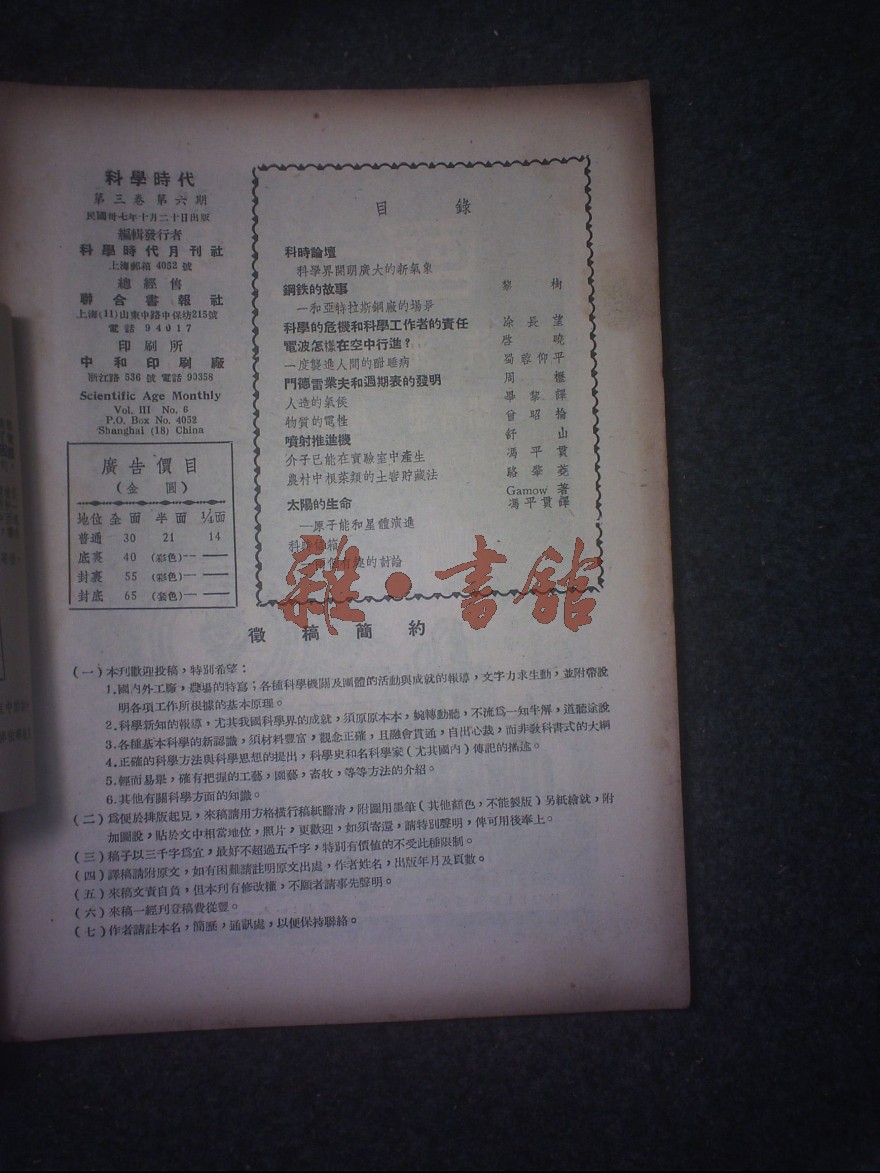 科學時代
第三卷第六期
民國卅七年十月二十日出版
編輯發行者
科學時代月刊社
上海郵箱 4052 號
總經售
聯合書報社
上海(11)山東中路中保坊215號
電話 94017
印刷所
中和印刷廠
浙江路 536 號 電話 90358
Scientific Age Monthly
Vol. III No. 6
P.O. Box No. 4052
Shanghai (18) China
廣告價目
(金圓)
地位 全面 半面 ¼面
普通 30 21 14
底裏 40 (彩色)
封裏 55 (彩色)
封底 65 (套色)
目錄
科時論壇
科學界開朗廣大的新氣象
鋼鉄的故事 黎樹
—和亞特拉斯鋼廠的場景
科學的危機和科學工作者的責任 涂長望
電波怎樣在空中行進? 啓曉
—度襲進人間的酣睡病 蜀蓉仰平
門德雷業夫和週期表的發明 周
人造的氣候 畢黎譯
物質的電性 曾昭掄
噴射推進機 舒山
介子已能在實驗室中產生 馮平貫
農村中根菜類的土窖貯藏法 駱黎菱
太陽的生命 Gamow 著 馮平貫譯
—原子能和星體演進
科時信箱
的討論
雜·書館
徵稿簡約
(一)本刊歡迎投稿,特別希望:
1.國內外工廠,農場的特寫;各種科學機關及團體的活動與成就的報導,文字力求生動,並附帶說
明各項工作所根據的基本原理。
2.科學新知的報導,尤其我國科學界的成就,須原原本本,婉轉動聽,不流爲一知半解,道聽途說
3.各種基本科學的新認識,須材料豐富,觀念正確,且融會貫通,自出心裁,而非教科書式的大綱
4.正確的科學方法與科學思想的提出,科學史和名科學家(尤其國內)傳記的描述。
5.輕而易舉,確有把握的工藝,園藝,畜牧,等等方法的介紹。
6.其他有關科學方面的知識。
(二)爲便於排版起見,來稿請用方格橫行稿紙謄清,附圖用墨筆(其他顏色,不能製版)另紙繪就,附
加圖說,貼於文中相當地位,照片,更歡迎,如須寄還,請特別聲明,俾可用後奉上。
(三)稿子以三千字爲宜,最好不超過五千字,特別有價值的不受此種限制。
(四)譯稿請附原文,如有困難請註明原文出處,作者姓名,出版年月及頁數。
(五)來稿文責自負,但本刊有修改權,不願者請事先聲明。
(六)來稿一經刊登稿費從豐。
(七)作者請註本名,簡歷,通訊處,以便保持聯絡。